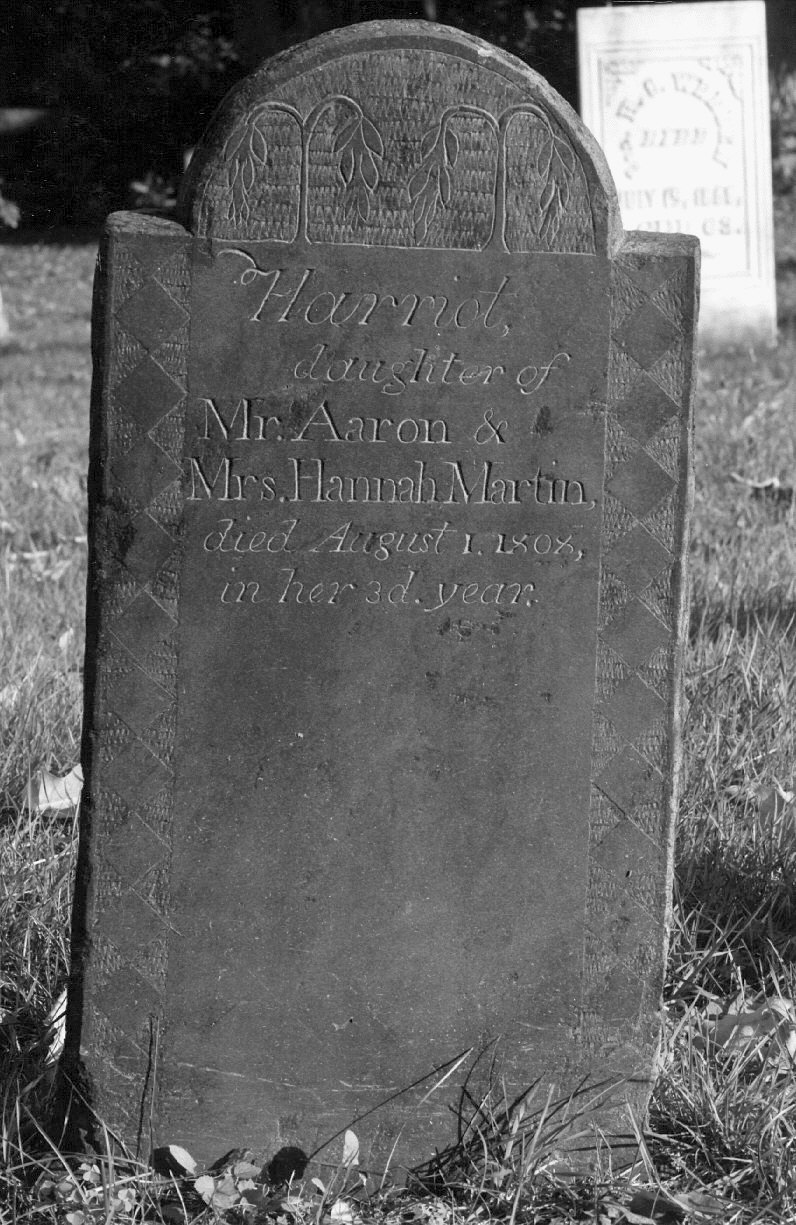 Harriot,
daughter of
Mr. Aaron &
Mrs. Hannah Martin,
died August 1. 1808,
in her 3d. year.
DIED